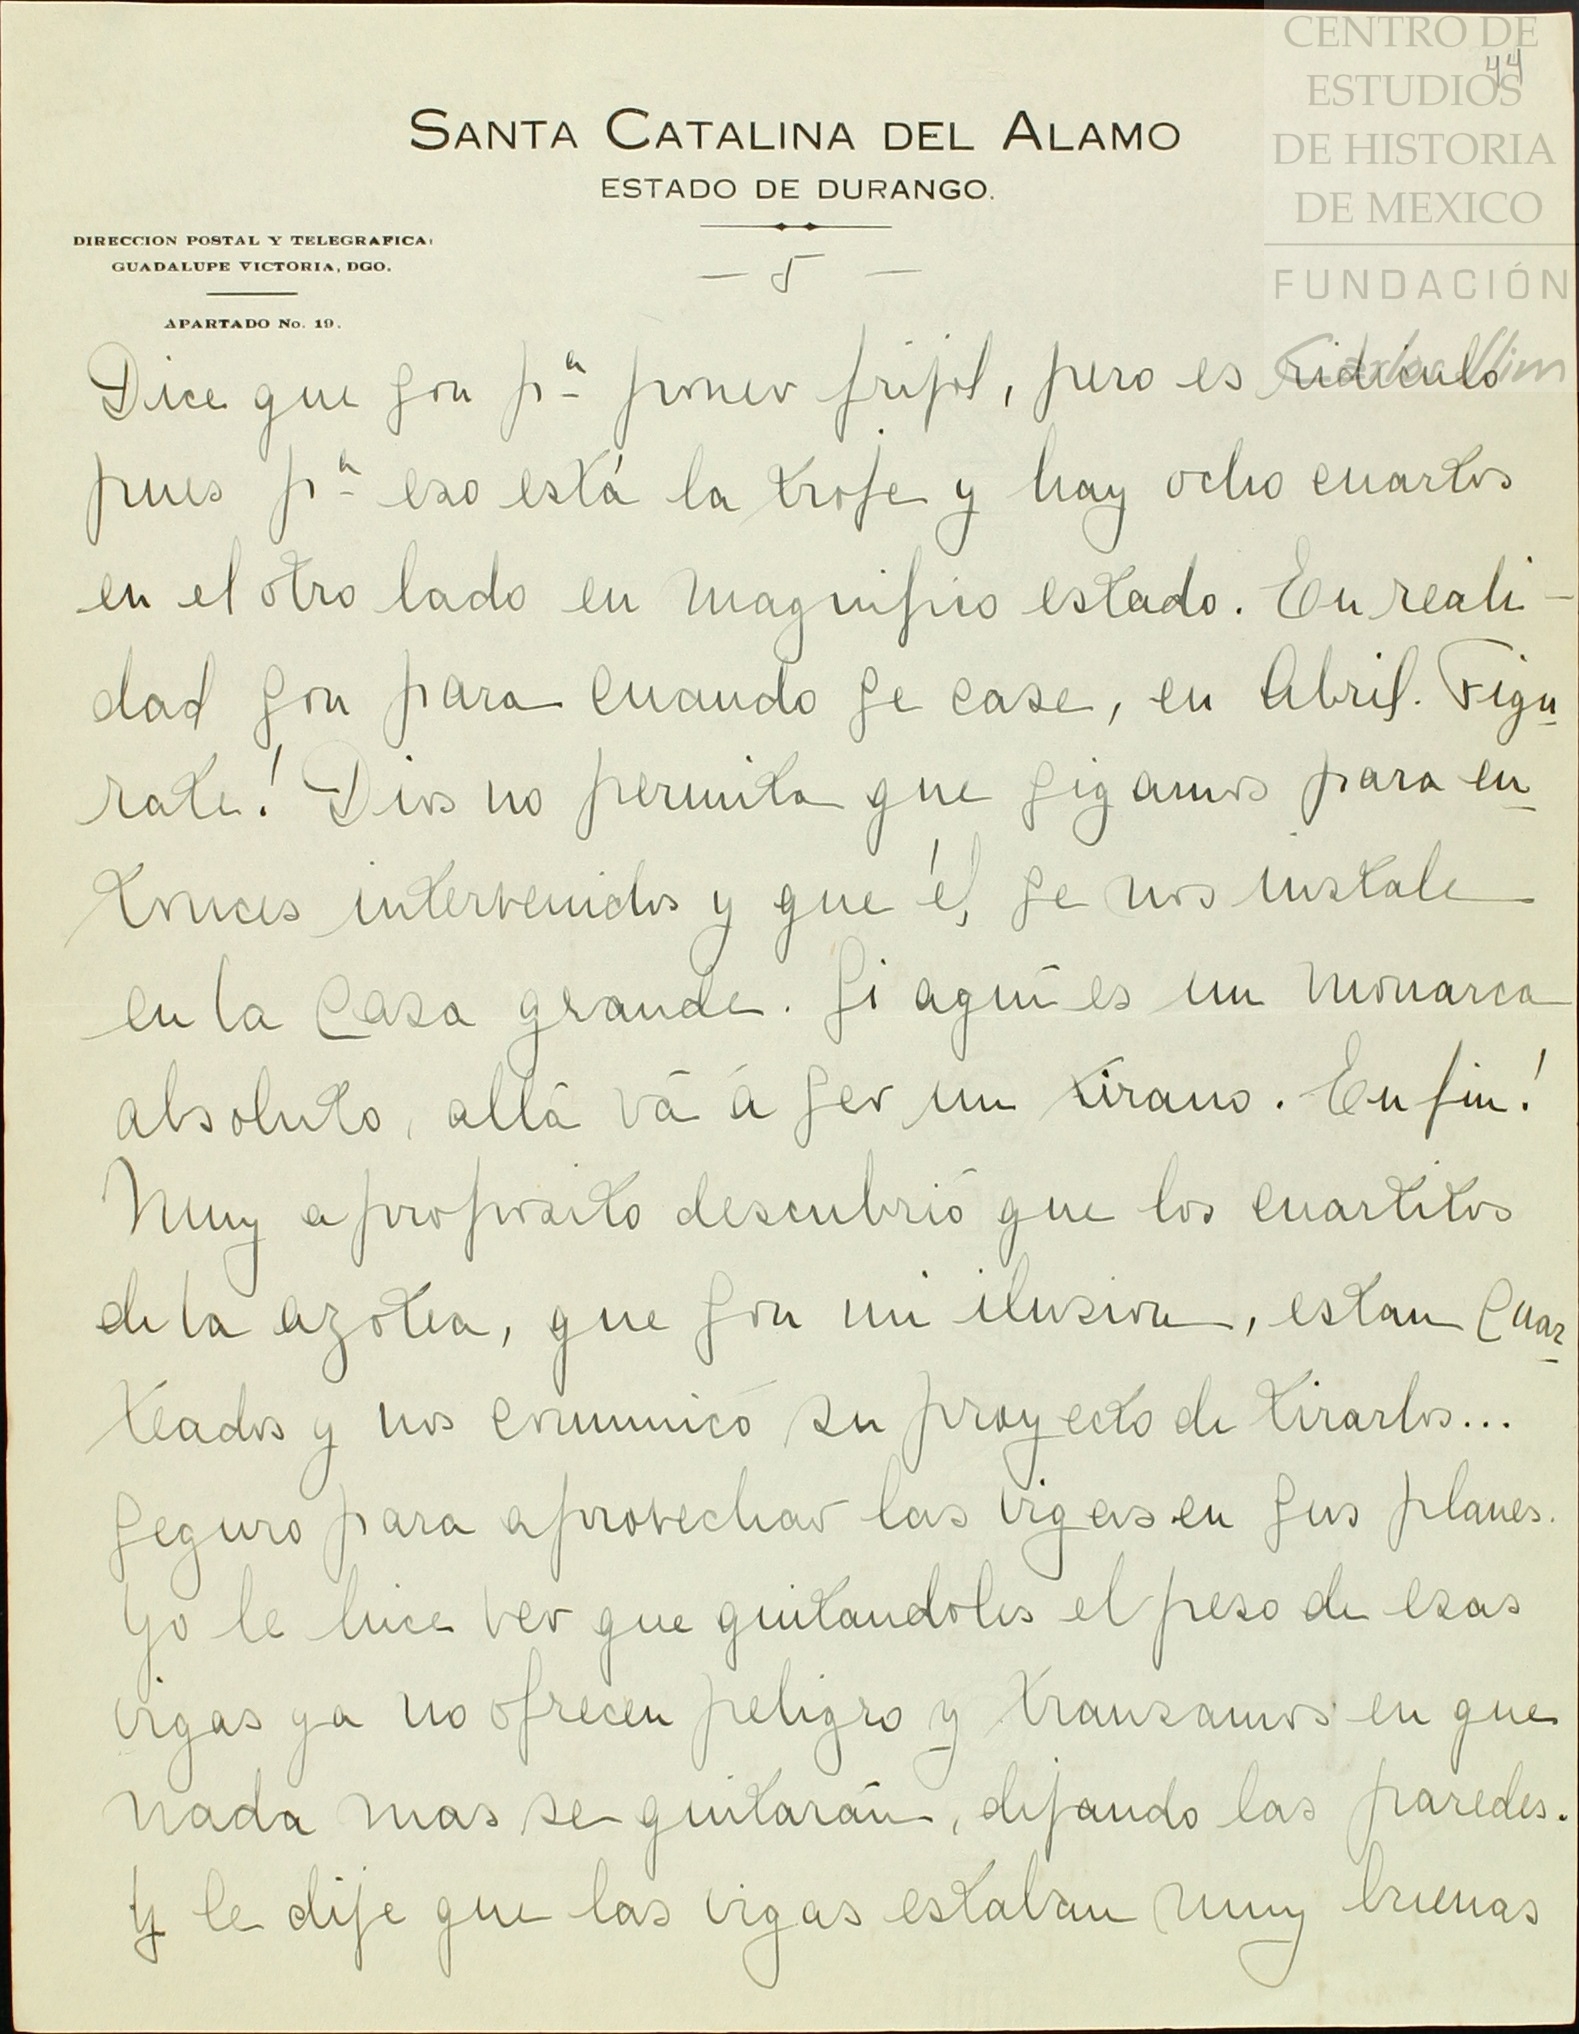 CENTRO DE
ESTUDIOS
DE HISTORIA
DE MEXICO
FUNDACIÓN
Carlos Slim
44
SANTA CATALINA DEL ALAMO
ESTADO DE DURANGO.
DIRECCION POSTAL Y TELEGRAFICA:
GUADALUPE VICTORIA, DGO.
APARTADO No. 19.
— 5 —
Dice que son pª poner frijol, pero es ridículo
pues pª eso está la trofe y hay ocho cuartos
en el otro lado en magnifico estado. En reali-
dad son para cuando se case, en Abril. Figu
rate! Dios no permita que sigamos para en
tonces intervenidos y que él, se nos instale
en la Casa grande. Si aquí es un monarca
absoluto, allá vá á ser un tirano. En fin!
Muy a proposito descubrió que los cuartitos
de la azotea, que son mi ilusion, estan Cuar
teados y nos comunicó su proyecto de tirarlos...
seguro para aprovechar las vigas en sus planes.
Yo le hice ver que quitandoles el peso de esas
vigas ya no ofrecen peligro y transamos en que
nada mas se quitarán, dejando las paredes.
Y le dije que las vigas estaban muy buenas